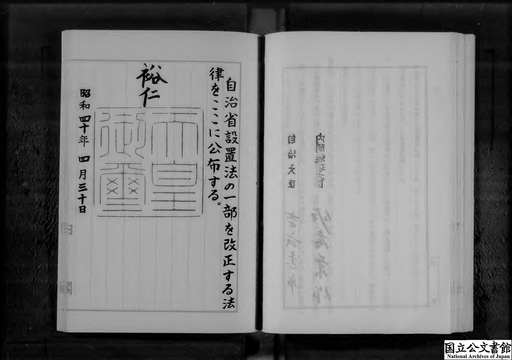 自治省設置法の一部を改正する法
律をここに公布する。
裕仁
天皇
御璽
昭和四十年四月三十日
内閣総理大臣
自治大臣
国立公文書館
National Archives of Japan